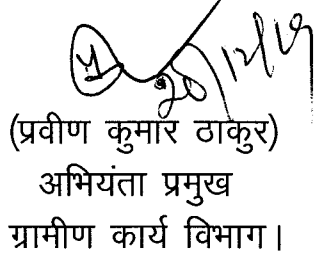 20/12/19
(प्रवीण कुमार ठाकुर)
अभियंता प्रमुख
ग्रामीण कार्य विभाग।